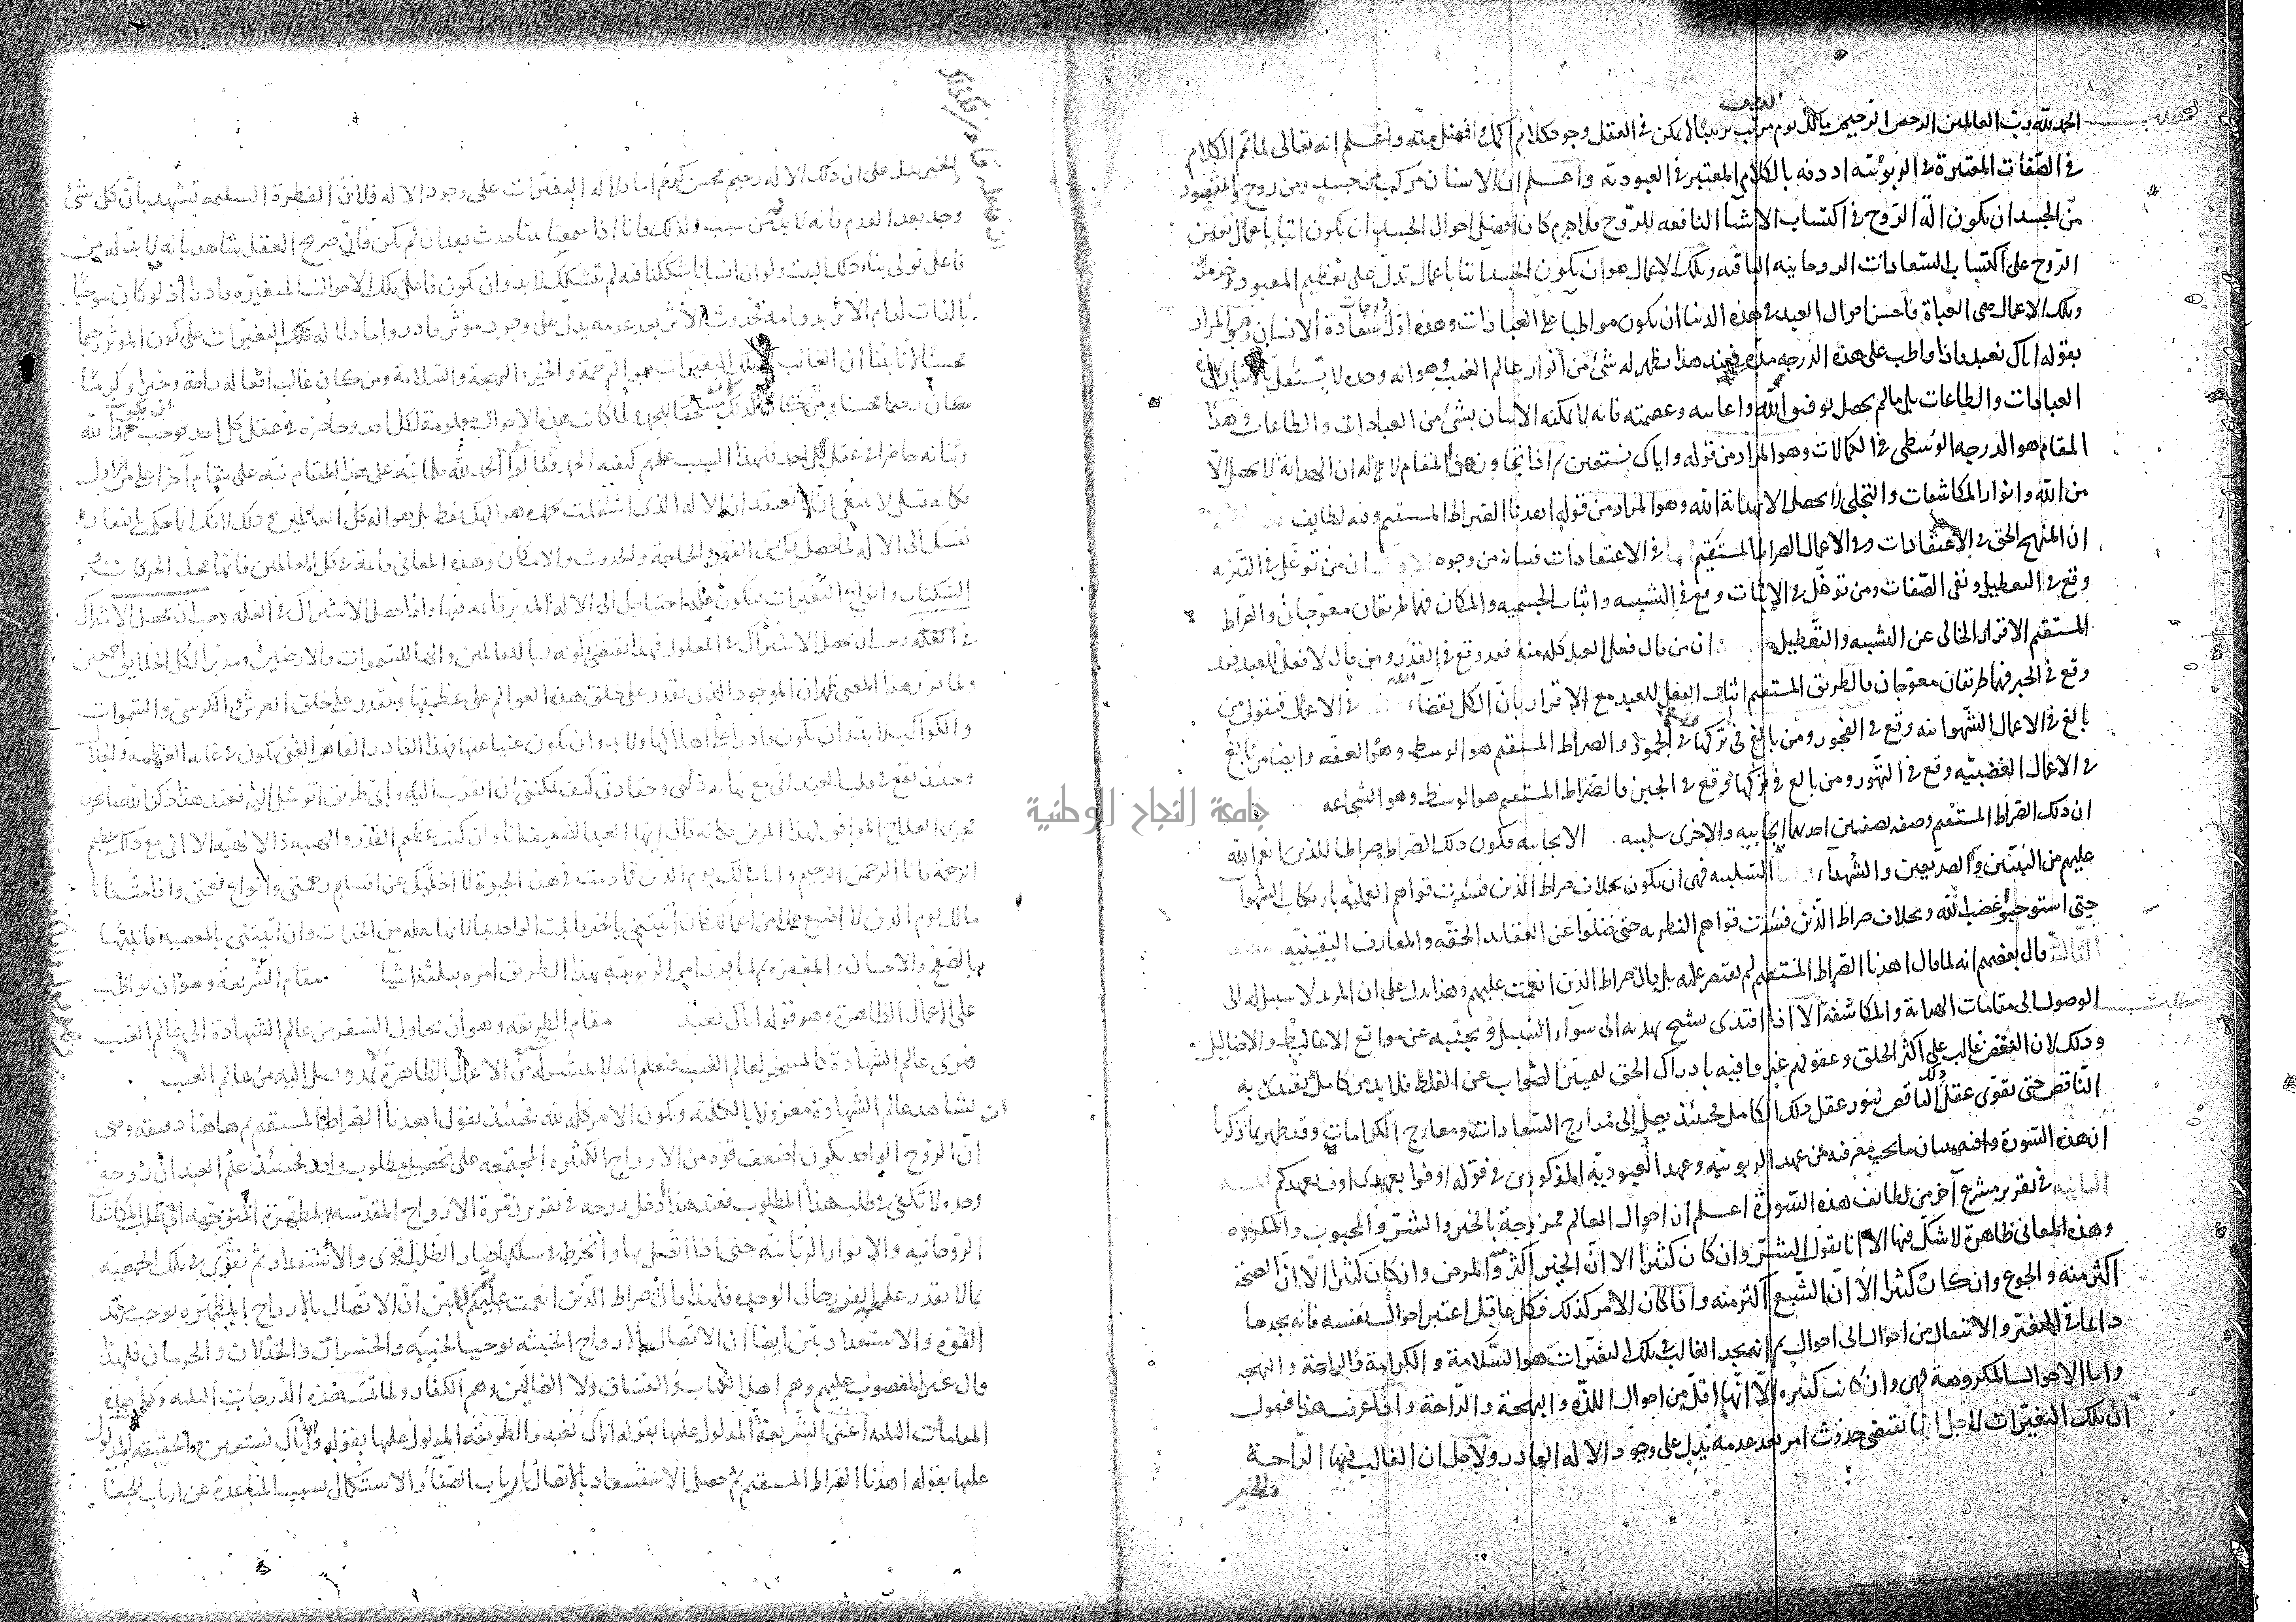 الحمد لله رب العالمين الرحمن الرحيم مالك يوم مرتب ترتيبا لا يمكن في العقل وجود كلام اكمل وافضل منه واعلم انه تعالى لما تمم الكلام
في الصفات المعتبرة في الربوبية اردفه بالكلام المعتبر في العبودية واعلم ان الانسان مركب من جسد ومن روح والمقصود
من الجسد ان يكون آلة الروح في اكتساب الاشيآ النافعه للروح فلا جرم كان افضل احوال الجسد ان يكون اتيا باعمال تعين
الروح على اكتساب السعادات الروحانيه الباقيه وتلك الاعمال هو ان يكون الجسد اتيا باعمال تدل على تعظيم المعبود وخدمته
وتلك الاعمال هى العبادة فاحسن احوال العبد في هذه الدنيا ان يكون مواظبا على العبادات وهذه اول درجات سعادة الانسان وهو المراد
بقوله اياك نعبد فاذا واظب على هذه الدرجه مدة فعند هذا يظهر له شئ من انوار عالم الغيب وهو انه وحده لا يستقل بالاتيان بهذه
العبادات والطاعات بل ما لم يحصل توفيق الله واعانته وعصمته فانه لا يمكنه الاتيان بشئ من العبادات والطاعات وهذا
المقام هو الدرجه الوسطى في الكمالات وهو المراد من قوله واياك نستعين ثم اذا تجاوز هذا المقام لاح له ان الهداية لا تحصل الا
من الله وانوار المكاشفات والتجلى لا يحصل الا بهداية الله وهو المراد من قوله اهدنا الصراط المستقيم وفيه لطايف
ان المنهج الحق في الاعتقادات وفي الاعمال الصراط المستقيم في الاعتقادات فبيانه من وجوه ان من توغل في التنزيه
وقع في التعطيل ونفى الصفات ومن توغل في الاثبات وقع في التشبيه واثبات الجسميه والمكان فهما طريقان معوجان والصراط
المستقيم الاقرار الخالى عن التشبيه والتعطيل ان من قال فعل العبد كله منه فقد وقع في القدر ومن قال لا فعل للعبد فقد
وقع في الجبر فهما طريقان معوجان فالطريق المستقيم اثبات الفعل للعبد مع الاقرار بان الكل بقضاء الله في الاعمال فنقول من
بالغ في الاعمال الشهوانيه وقع في الفجور ومن بالغ في تركها وقع في الجمود والصراط المستقيم هو الوسط وهو العفه وايضا من بالغ
في الاعمال الغضبيه وقع في التهور ومن بالغ في تركها وقع في الجبن فالصراط المستقيم هو الوسط وهو الشجاعه
ان ذلك الصراط المستقيم وصفه بصفتين احديهما ايجابيه والاخرى سلبيه الايجابيه فكون ذلك الصراط صراطا للذين انعم الله
عليهم من النبيين والصديقين والشهداء السلبيه فهى ان يكون بخلاف صراط الذين فسدت قواهم العمليه بارتكاب الشهوا
حتى استوجبوا غضب الله وبخلاف صراط الذين فسدت قواهم النظريه حتى ضلوا عن العقايد الحقه والمعارف اليقينيه
الثالثة قال بعضهم انه لما قال اهدنا الصراط المستقيم لم يقتصر عليه بل قال صراط الذين انعمت عليهم وهذا يدل على ان المريد لا سبيل له الى
الوصول الى مقامات الهداية والمكاشفة الا اذا اقتدى بشيخ يهديه الى سواء السبيل ويجنبه عن مواقع الاغاليط والاضاليل
وذلك لان النقص غالب على اكثر الخلق وعقولهم غير وافيه بادراك الحق لتمييز الصواب عن الغلط فلا بد من كامل يقتدى به
الناقص حتى يتقوى عقل ذلك الناقص بنور عقل ذلك الكامل فحينئذ يصل الى مدارج السعادات ومعارج الكرامات وقد ظهر بما ذكرنا
ان هذه السورة وافيه ببيان ما يجب معرفته من عهد الربوبيه وعهد العبوديه المذكورين في قوله اوفوا بعهدى اوف بعهدكم
الثانيه في تقرير مشرع آخر من لطائف هذه السورة اعلم ان احوال العالم ممزوجة بالخير والشر والمحبوب والمكروه
وهذه المعانى ظاهرة لا شك فيها الا انا نقول الشر وان كان كثيرا الا ان الخير اكثر منه والمرض وان كان كثيرا الا ان الصحة
اكثر منه والجوع وان كان كثيرا الا ان الشبع اكثر منه واذا كان الامر كذلك فكل عاقل اعتبر احوال نفسه فانه يجدها
دائما في التغير والانتقال من احوال الى احوال ثم انه يجد الغالب في تلك التغيرات هو السلامة والكرامة والراحة والبهجه
واما الاحوال المكروهة فهى وان كانت كثيره الا انها اقل من احوال اللذه والبهجة والراحة واذا عرفت هذا فنقول
ان تلك التغيرات لاجل انها تقتضى حدوث امر بعد عدمه تدل على وجود الاله القادر ولاجل ان الغالب فيها الراحة
والخير
الخير يدل على ان ذلك الاله رحيم محسن كريم اما دلاله التغيرات على وجود الاله فلان الفطرة السليمه تشهد بان كل شئ
وجد بعد العدم فانه لا بد له من سبب ولذلك فانا اذا سمعنا بيتا حدث بعد ان لم يكن فان صريح العقل شاهد بانه لا بد له من
فاعل تولى بناء ذلك البيت ولو ان انسانا شككنا فيه لم نتشكك لا بد وان يكون فاعل تلك الاحوال المتغيره قادرا اذ لو كان موجبا
بالذات لدام الاثر بدوامه فحدوث الاثر بعد عدمه يدل على وجود مؤثر قادر واما دلاله تلك التغيرات على كون المؤثر رحيما
محسنا لانا بينا ان الغالب في تلك التغيرات هو الرحمة والخير والبهجة والسلامة ومن كان غالب افعاله راحة وخيرا وكرما
كان رحيما محسنا ومن كان كذلك كان مستحقا للحمد ولما كانت هذه الاحوال معلومة لكل احد وحاضره في عقل كل احد فوجب ان يكون حمد الله
وثنائه حاضرا في عقل كل احد فلهذا السبب علمهم كيفيه الحمد فقال قولوا الحمد لله فلما نبه على هذا المقام نبه على مقام آخر اعلى من الاول
كانه قيل لا ينبغى ان تعتقد ان الاله الذى اشتغلت بحمده هو الهك فقط بل هو اله كل العالمين وذلك لانك انما حكمت بافتقار
نفسك الى الاله لما حصل فيك من الفقر والحاجة والحدوث والامكان وهذه المعانى قائمة في كل العالمين فانها محل الحركات و
السكنات وانواع التغيرات فيكون علة احتياجك الى الاله المدبر قائمه فيها واذا حصل الاشتراك في العله وجب ان يحصل الاشتراك
في العله وجب ان يحصل الاشتراك في المعلول فهذا يقتضى كونه ربا للعالمين والها للسموات والارضين ومدبرا لكل الخلايق اجمعين
ولما تقرر هذا المعنى ظهر ان الموجود الذى يقدر على خلق هذه العوالم على عظمتها ويقدر على خلق العرش والكرسى والسموات
والكواكب لا بد وان يكون قادرا على اهلاكها ولا بد وان يكون غنيا عنها فهذا القادر القاهر الغنى يكون في غاية العظمه والجلا
وحينئذ يقع في قلب العبد انى مع نهايه ذلتى وحقارتى كيف يمكننى ان اتقرب اليه وباى طريق اتوسل اليه فعند هذا ذكر الله ما يجرى
مجرى العلاج الموافق لهذا المرض فكانه قال ايها العبد الضعيف انا وان كنت عظيم القدرة والهيبه والالهيه الا انى مع ذلك عظيم
الرحمة فانا الرحمن الرحيم وانا مالك يوم الدين فما دمت في هذه الحيوة لا اخليك عن اقسام رحمتى وانواع نعمتى واذا مت فانا
مالك يوم الدين لا اضيع عملا من اعمالك فان اتيتنى بالخير قابلت الواحد بما لا نهايه له من الخيرات وان اتيتنى بالمعصيه قابلتها
بالصفح والاحسان والمغفره ثم لما قرر امر الربوبيه بهذا الطريق امره بثلثة اشيا مقام الشريعة وهو ان يواظب
على الاعمال الظاهرة وهو قوله اياك نعبد مقام الطريقه وهو ان يحاول السفر من عالم الشهادة الى عالم الغيب
فيرى عالم الشهادة كالمسخر لعالم الغيب فيعلم انه لا يتيسر له شئ من الاعمال الظاهرة الا بمدد يصل اليه من عالم الغيب
ان يشاهد عالم الشهادة معزولا بالكليه ويكون الامر كله لله فحينئذ يقول اهدنا الصراط المستقيم ثم هاهنا دقيقه وهى
ان الروح الواحد يكون اضعف قوه من الارواح الكثيره المجتمعه على تحصيل مطلوب واحد فحينئذ علم العبد ان روحه
وحده لا تكفى في طلب هذا المطلوب فعند هذا ادخل روحه في زمرة الارواح المقدسه المطهرة المتوجهه الى طلب المكاشفا
الروحانيه والانوار الربانيه حتى اذا اتصل بها وانخرط في سلكها صار الطلب اقوى والاستعداد ثم تقوى في تلك الجمعيه
بما لا يقدر عليه حال الوحده فلهذا قال صراط الذين انعمت عليهم ثم لما بين ان الاتصال بالارواح المطهره يوجب مزيد
القوه والاستعداد بين ايضا ان الاتصال بالارواح الخبيثه يوجب الخيبه والخسران والخذلان والحرمان فلهذا
قال غير المغضوب عليهم وهم اهل الكتاب والفساق ولا الضالين وهم الكفار ولما تمت هذه الدرجات الثلثه وكملت هذه
المقامات الثلثه اعنى الشريعة المدلول عليها بقوله اياك نعبد والطريقه المدلول عليها بقوله واياك نستعين والحقيقه المدلول
عليها بقوله اهدنا الصراط المستقيم ثم حصل الاستسعاد بالاتصال بارباب الصفاء والاستكمال بسبب المباعدة عن ارباب الجفا
جامعة النجاح الوطنية